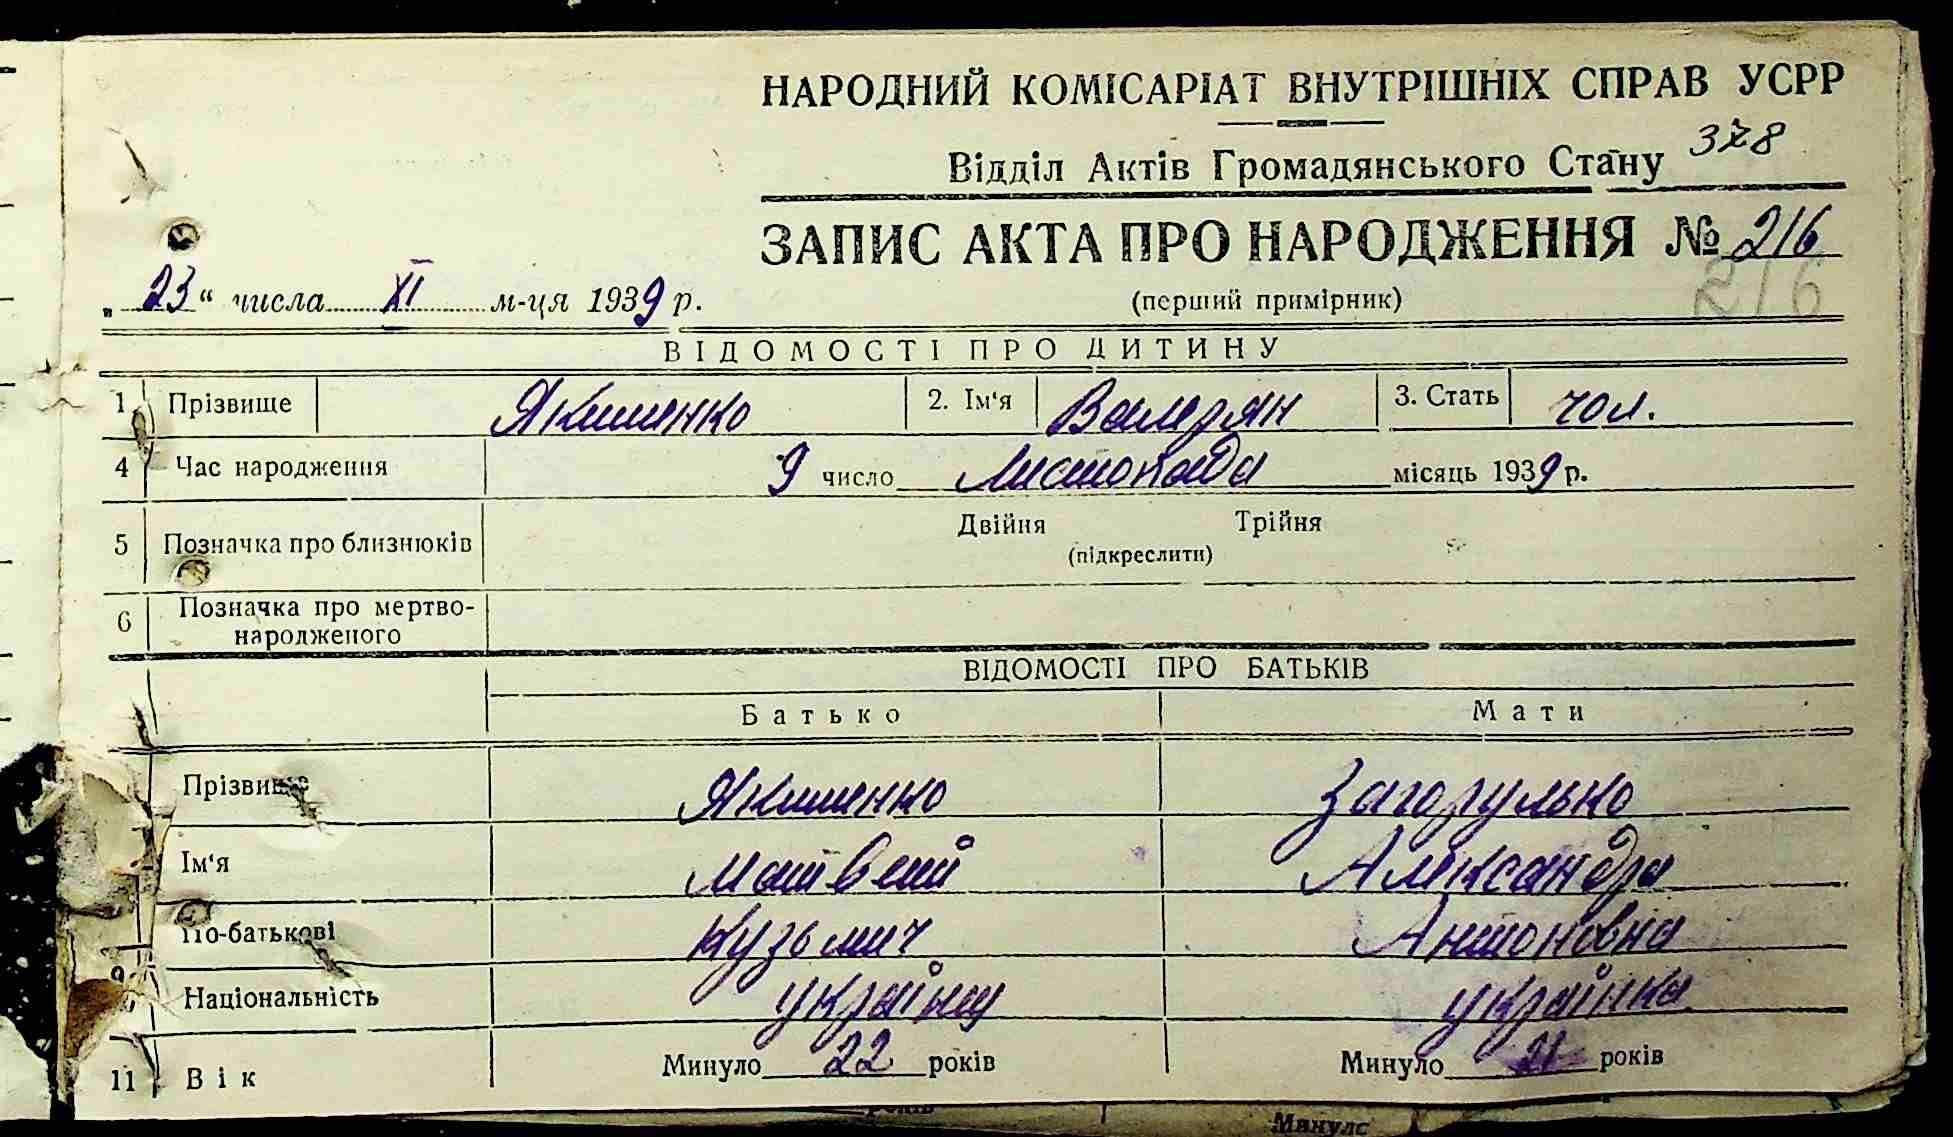 НАРОДНИЙ КОМІСАРІАТ ВНУТРІШНІХ СПРАВ УСРР
Відділ Актів Громадянського Стану 378
ЗАПИС АКТА ПРО НАРОДЖЕННЯ № 216
„23“ числа XI м-ця 1939 р. (перший примірник) 216
ВІДОМОСТІ ПРО ДИТИНУ
1 Прізвище Якименко 2. Ім'я Валерян 3. Стать чол.
4 Час народження 9 число Листопада місяць 1939 р.
5 Позначка про близнюків Двійня Трійня
(підкреслити)
6 Позначка про мертво-
народженого
ВІДОМОСТІ ПРО БАТЬКІВ
Батько Мати
Прізвище Якименко Загорулько
Ім'я Матвеий Александра
По-батькові Кузьмич Антоновна
9 Національність українец українка
11 Вік Минуло 22 років Минуло 21 років
років Минуло